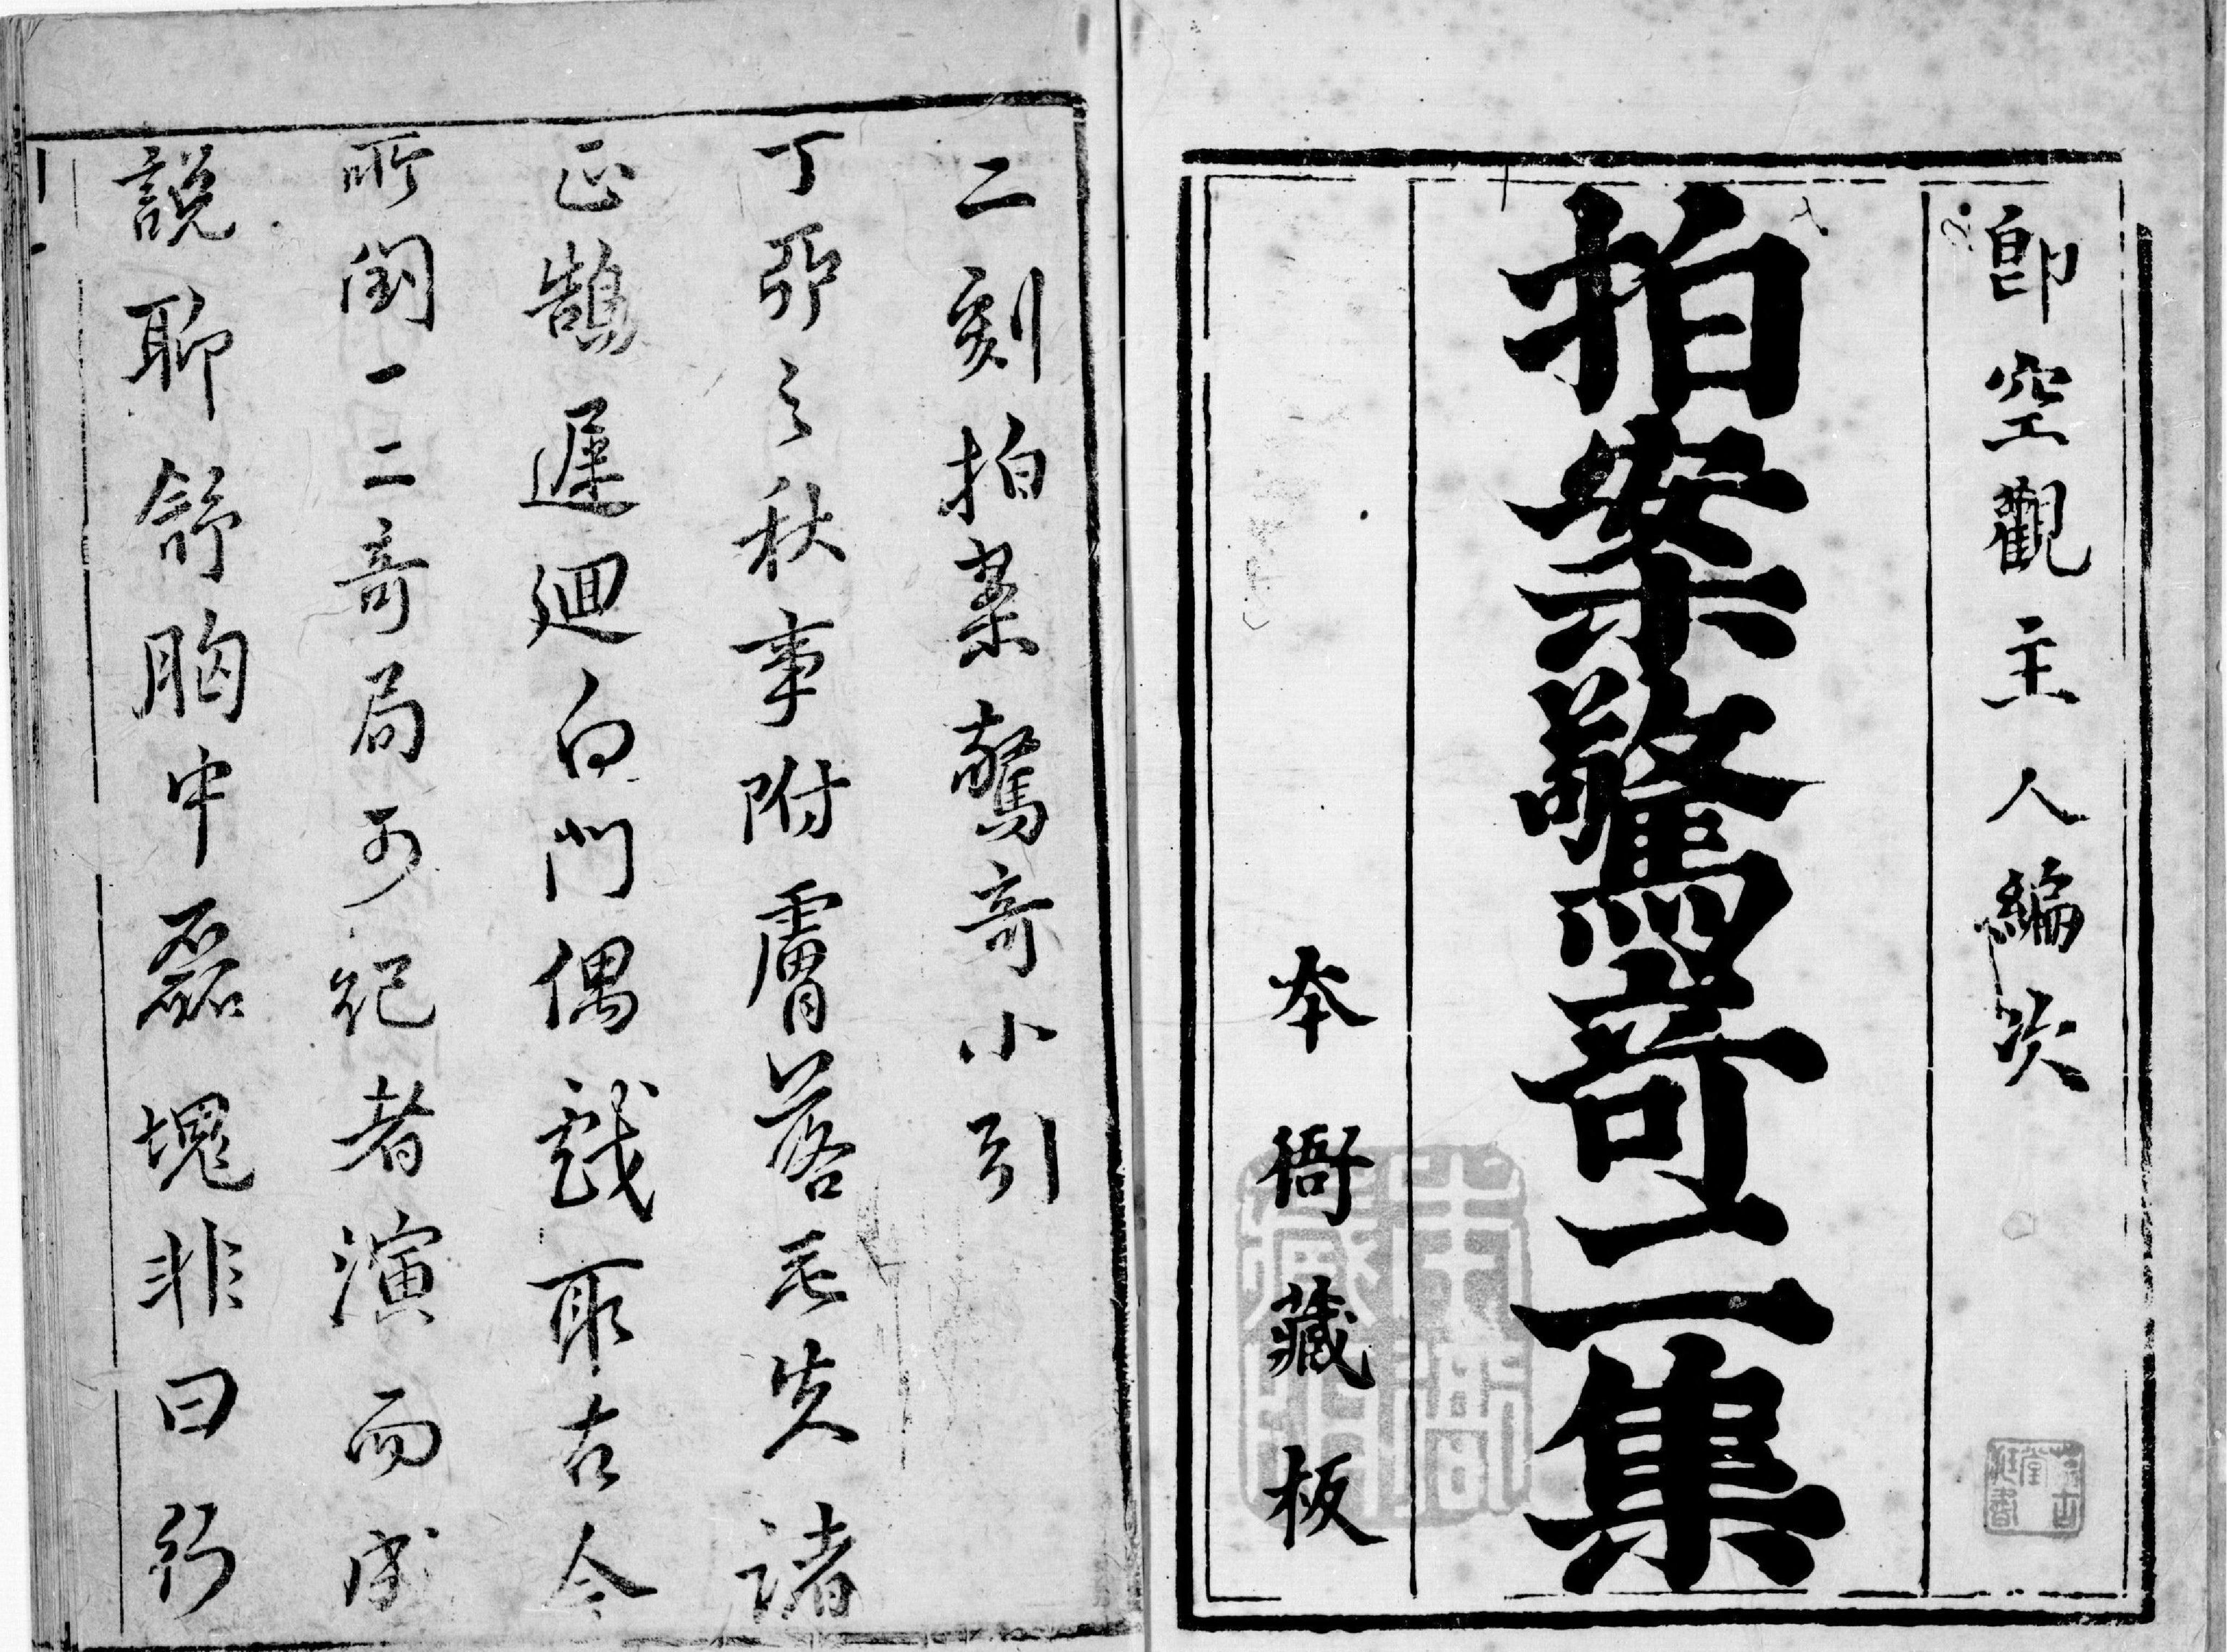 即空觀主人編次
拍案驚竒二集
本衙藏板
二刻拍案驚竒小引
丁卯之秋事附膚落毛失諸
正鵠遲迴白門偶戲取古今
所聞一二竒局可紀者演而成
說聊舒胸中磊塊非曰行